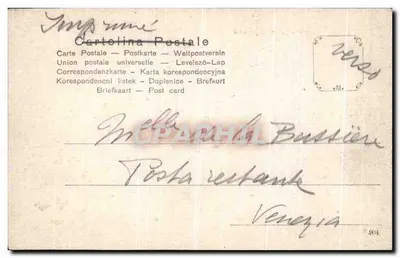 Imprimé
Cartolina Postale
Carte Postale — Postkarte — Weltpostverein
Union postale universelle — Levelező-Lap
Correspondenzkarte — Karta korespondencyjna
Korespondencni listek — Dopisnice — Brefkort
Briefkaart — Post card
verso
Melle de la Bussière
Posta restante
Venezia
904